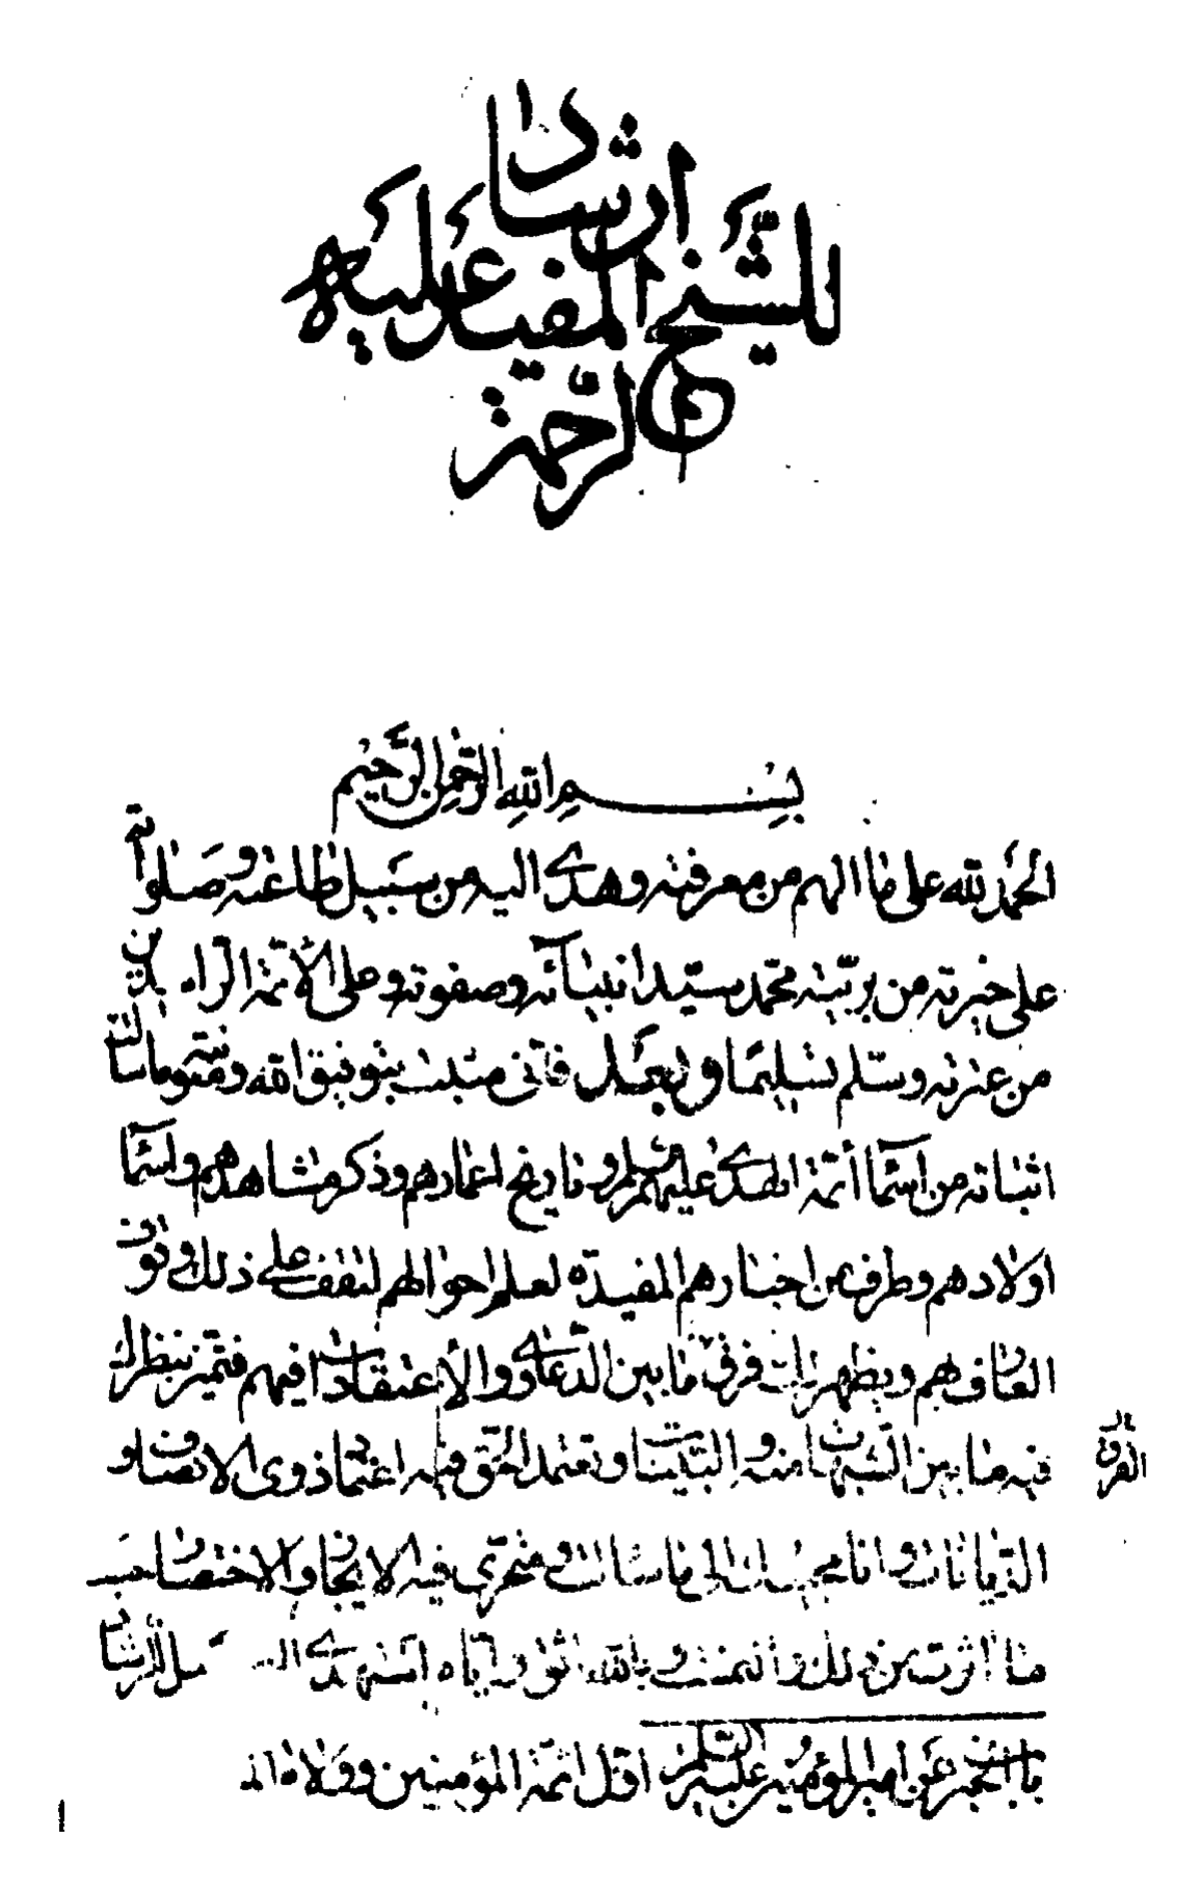 ارشاد
للشيخ المفيد عليه
الرحمة
بسم الله الرحمن الرحيم
الحمد لله على ما الهم من معرفته وهدى اليه من سبيل طاعته وصلواته
على خيرته من بريته محمد سيد انبيائه وصفوته وعلى الأئمة الراشدين
من عترته وسلم تسليما وبعد فانى مثبت بتوفيق الله ومعونته ما سألت
اثباته من اسمآ أئمة الهدى عليهم السلم وتاريخ اعمارهم وذكر مشاهدهم واسمآ
اولادهم وطرف من اخبارهم المفيدة لعلم احوالهم لتقف على ذلك وقوف
العارف بهم ويظهر لك فرق ما بين الدعاوى والاعتقادات فيهم فتميز بنظرك
فيه ما بين الشبهات منه والبينات وتعتمد الحق فيه اعتماد ذوى الانصاف و
الفرق
الديانات وانا مجيبك الى ما سألت ومتحرى فيه الايجاز والاختصار حسب
ما اثرت من ذلك والتمست وبالله اثق واياه استهدى الى سبيل الرشاد
باب الخبر عن امير المؤمنين عليه السلم اول ائمة المؤمنين وولاة
١